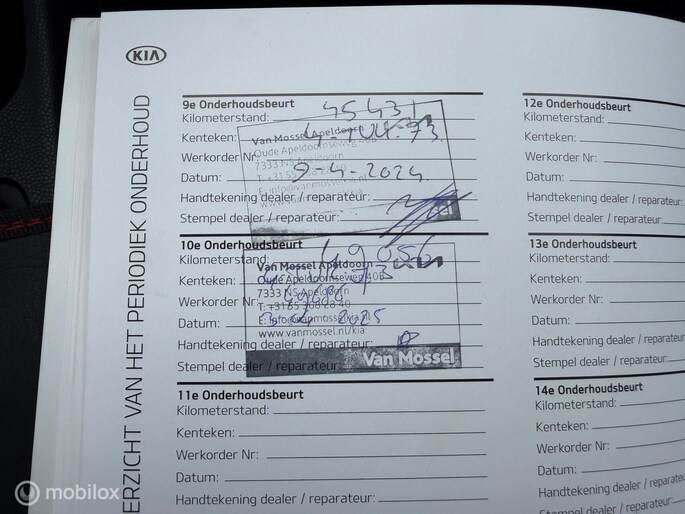 KIA
ERZICHT VAN HET PERIODIEK ONDERHOUD
9e Onderhoudsbeurt
Kilometerstand: 45431
Kenteken:
Werkorder Nr:
Datum: 9-4-2024
Handtekening dealer / reparateur:
Stempel dealer / reparateur:
Van Mossel Apeldoorn
Oude Apeldoornseweg 40B
7333 NS Apeldoorn
10e Onderhoudsbeurt
Kilometerstand: 49056
Kenteken:
Werkorder Nr:
Datum: 2025
Handtekening dealer / reparateur:
Stempel dealer / reparateur:
Van Mossel Apeldoorn
Oude Apeldoornseweg 40B
7333 NS Apeldoorn
www.vanmossel.nl/kia
Van Mossel
11e Onderhoudsbeurt
Kilometerstand:
Kenteken:
Werkorder Nr:
Datum:
Handtekening dealer / reparateur:
12e Onderhoudsbeurt
Kilometerstand:
Kenteken:
Werkorder Nr:
Datum:
Handtekening dealer /
Stempel dealer / reparateu
13e Onderhoudsbeurt
Kilometerstand:
Kenteken:
Werkorder Nr:
Datum:
Handtekening dealer / r
Stempel dealer / repara
14e Onderhoudsbeurt
Kilometerstand:
Kenteken:
Werkorder Nr:
Datum:
Handtekening dealer
mobilox